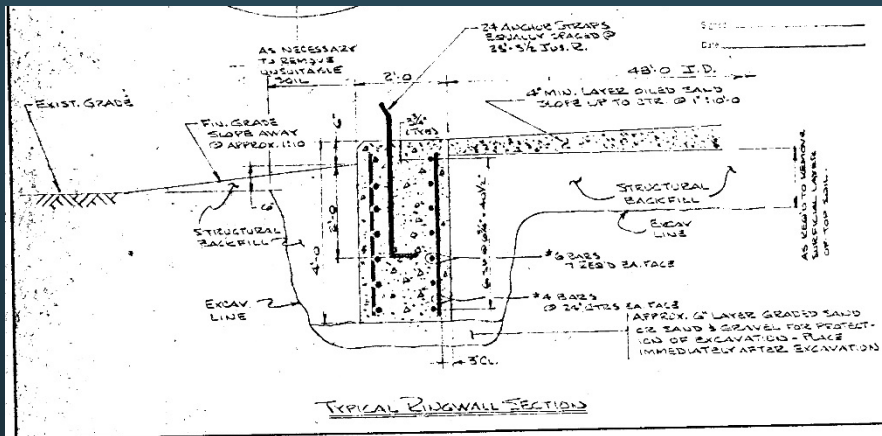 24 ANCHOR STRAPS
EQUALLY SPACED @
25'-3½ INS. R.
Date
AS NECESSARY
TO REMOVE
UNSUITABLE
SOIL
2'-0
48'-0 I.D.
4" MIN. LAYER OILED SAND
SLOPE UP TO CTR. @ 1":10'-0
EXIST. GRADE
FIN. GRADE
SLOPE AWAY
@ APPROX. 1:10
6"
(TYP.)
6"
STRUCTURAL
BACKFILL
4'-0
2'-0
STRUCTURAL
BACKFILL
EXCAV
LINE
AS REQ'D TO REMOVE
SURFICIAL LAYER
OF TOP SOIL.
#6 BARS
7 REQ'D EA. FACE
#4 BARS
@ 24" CTRS EA. FACE
EXCAV.
LINE
APPROX. 6" LAYER GRADED SAND
OR SAND & GRAVEL FOR PROTECT-
ION OF EXCAVATION - PLACE
IMMEDIATELY AFTER EXCAVATION
3" CL.
TYPICAL RINGWALL SECTION